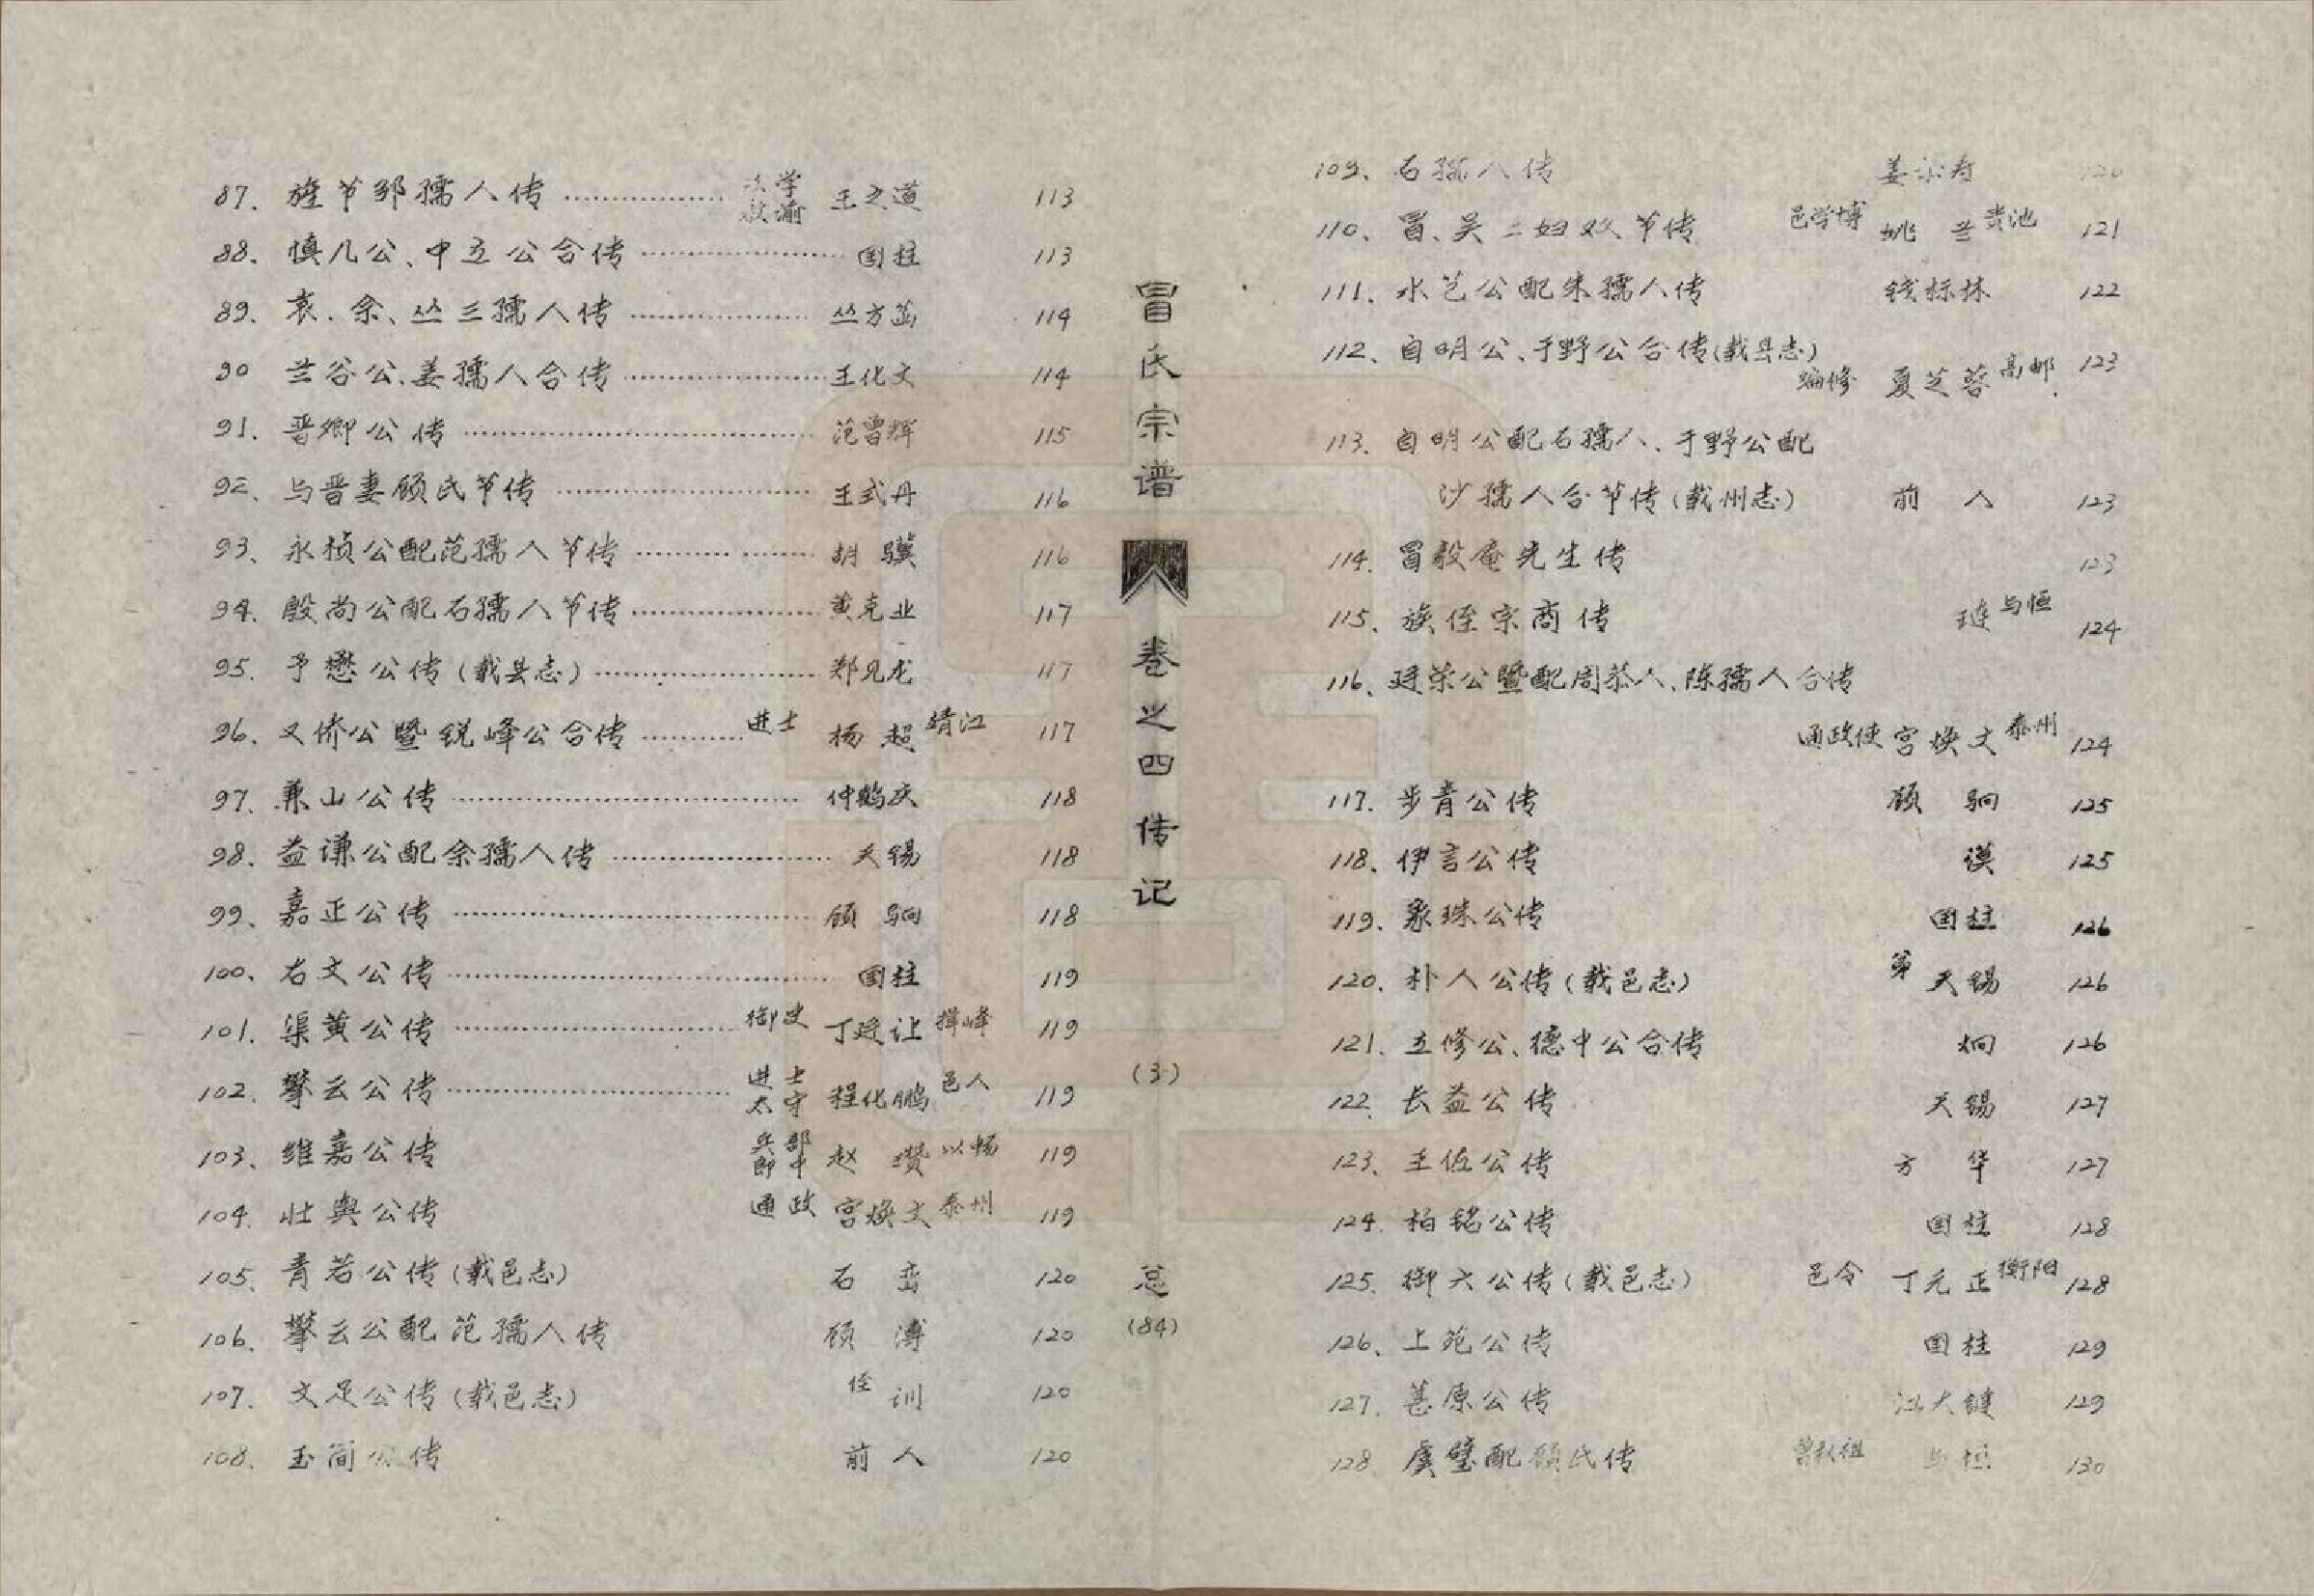 87、旌节邹孺人传……………… 学教谕 王之道 113
88、慎几公、中立公合传………………… 国柱 113
89、袁、余、丛三孺人传……………… 丛方菡 114
90 兰谷公、姜孺人合传………………… 王化文 114
91、晋卿公传……………………………… 范曾辉 115
92、与晋妻顾氏节传……………………… 王式丹 116
93、永桢公配范孺人节传……………… 胡骥 116
94、殷尚公配石孺人节传……………… 黄克业 117
95、予懋公传(载县志)………………… 郑见龙 117
96、又侨公暨锐峰公合传……… 进士 杨超 靖江 117
97、兼山公传……………………………… 仲鹤庆 118
98、益谦公配余孺人传………………… 天锡 118
99、嘉正公传……………………………… 顾驹 118
100、右文公传……………………………… 国柱 119
101、渠黄公传…………………… 御史 丁廷让 择峰 119
102、攀云公传…………………… 进士太守 程化鹏 邑人 119
103、维嘉公传 兵部郎中 赵瓒 以畅 119
104、壮舆公传 通政 宫焕文 泰州 119
105、青若公传(载邑志) 石峦 120
106、攀云公配范孺人传 顾溥 120
107、文足公传(载邑志) 侄 训 120
108、玉简公传 前人 120
冒氏宗谱 卷之四 传记 (3) 总(84)
109、石孺人传 姜 寿 120
110、冒、吴二妇双节传 邑学博 姚兰 贵池 121
111、水艺公配朱孺人传 钱标林 122
112、自明公、于野公合传(载县志)
编修 夏芝蓉 高邮 123
113、自明公配石孺人、于野公配
沙孺人合节传(载州志) 前人 123
114、冒毅庵先生传 123
115、族侄宗商传 琏 与恒 124
116、廷荣公暨配周恭人、陈孺人合传
通政使 宫焕文 泰州 124
117、步青公传 顾驹 125
118、伊言公传 谟 125
119、象珠公传 国柱 126
120、朴人公传(载邑志) 弟 天锡 126
121、立修公、德中公合传 炯 126
122、长益公传 天锡 127
123、王佐公传 方华 127
124、柏铭公传 国柱 128
125、御六公传(载邑志) 邑令 丁元正 衡阳 128
126、上苑公传 国柱 129
127、善原公传 江大键 129
128 虞璧配顾氏传 曾叔祖 与恒 130